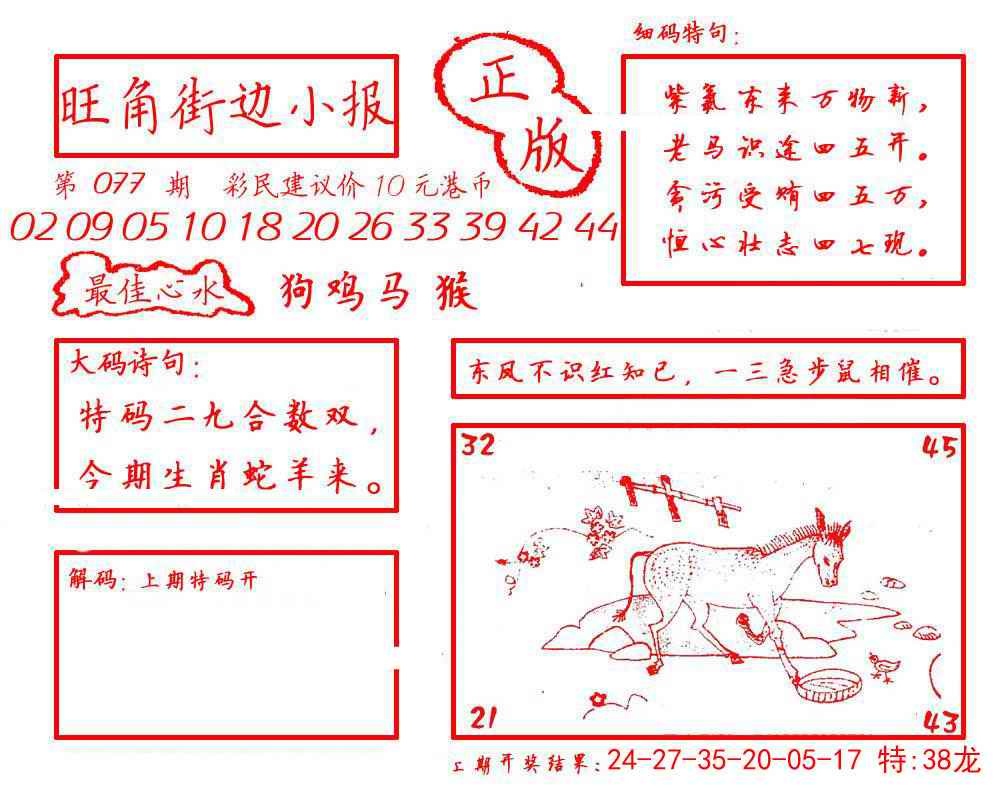 旺角街边小报
正版
第 077 期 彩民建议价10元港币
02 09 05 10 18 20 26 33 39 42 44
最佳心水 狗鸡马猴
细码特句：
紫氣东来万物新，
老马识途四五开。
贪污受贿四五万，
恒心壮志四七现。
大码诗句：
特码二九合数双，
今期生肖蛇羊来。
东风不识红知己，一三急步鼠相催。
解码：上期特码开
32 45
21 43
上期开奖结果：24-27-35-20-05-17 特:38龙